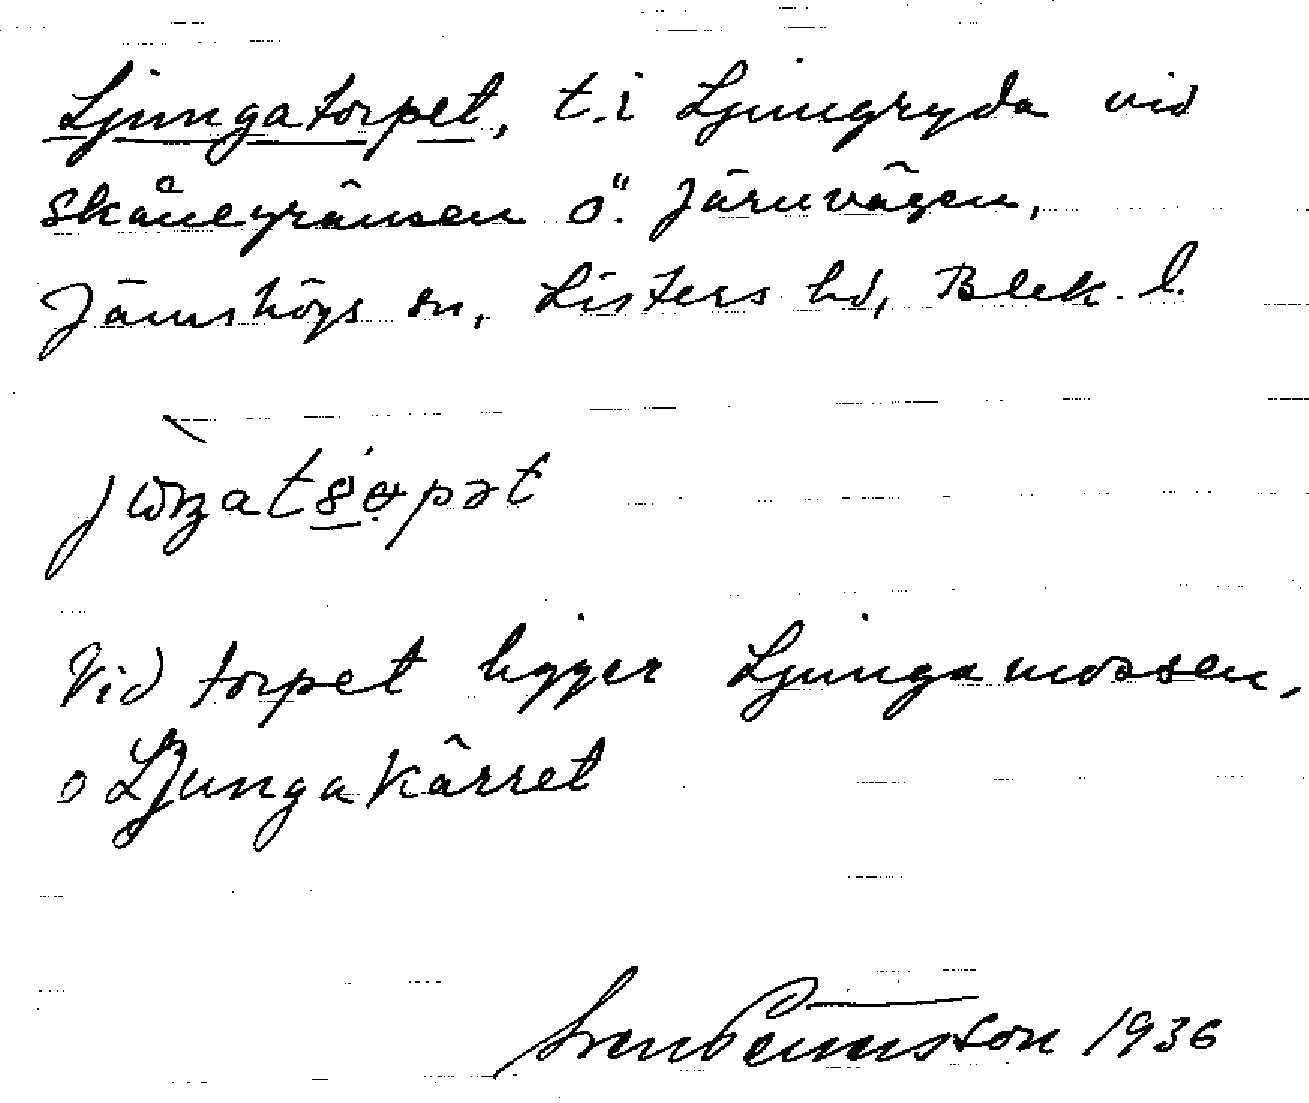 Ljungatorpet, t. i Ljungryda vid
skånegränsen ö. järnvägen,
Jämshögs sn, Listers hd, Blek. l.
Vid torpet ligger Ljungamossen,
o Ljungakärret
Sven Benson 1936